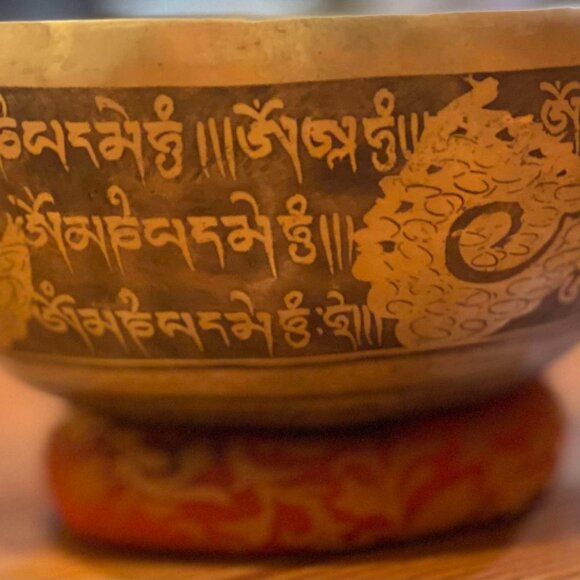 ཎིཔདམེཧཱུྃ།།།ཨོཾཨཱཧཱུྃ།།།
ཨོཾམཎིཔདམེཧཱུྃ།།།
ཨོཾམཎིཔདམེཧཱུྃཿཧྲི།།